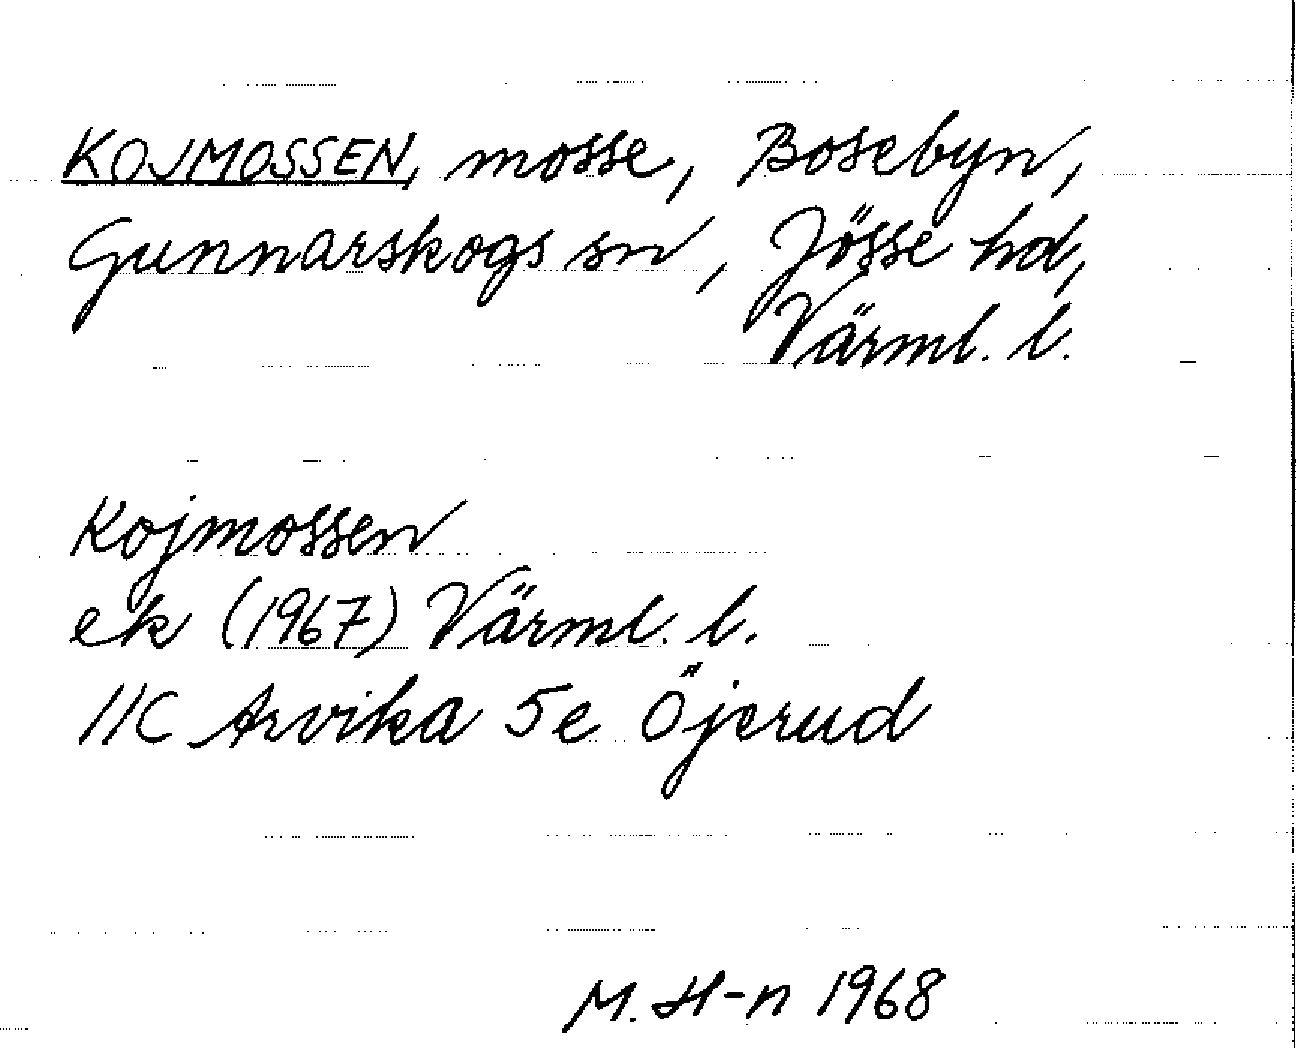 KOJMOSSEN, mosse, Bosebyn,
Gunnarskogs sn, Jösse hd,
Värml. l.
Kojmossen
ek (1967) Värml. l.
11C Arvika 5e Öjerud
M. H-n 1968